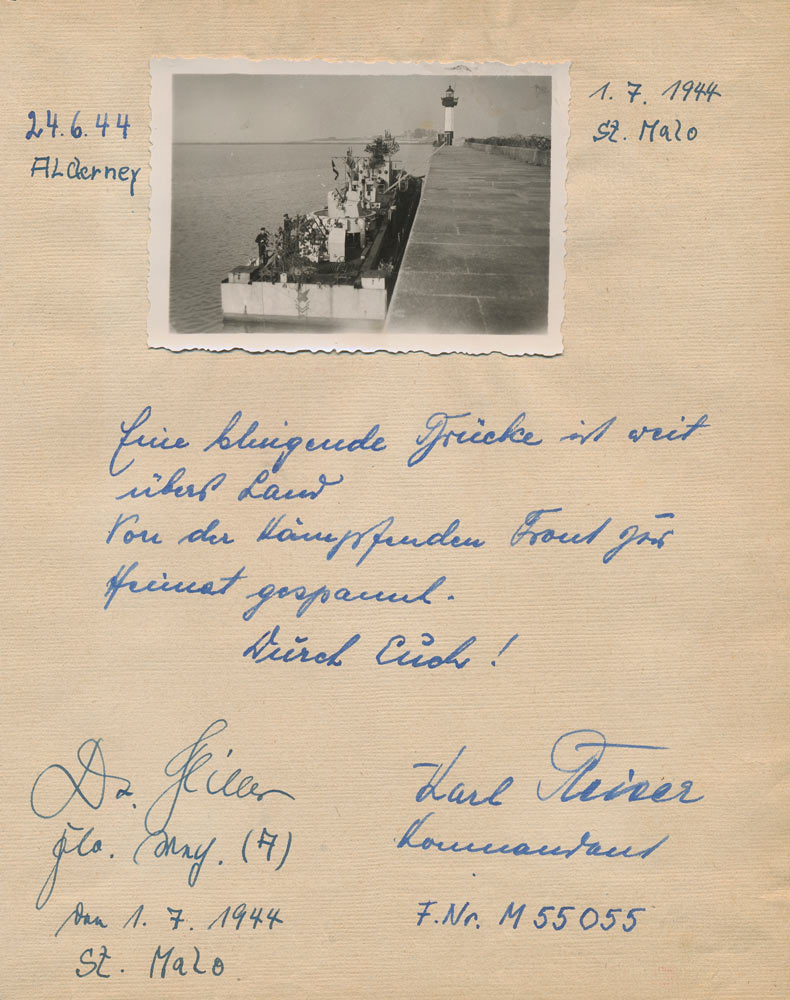 24.6.44
Alderney
1. 7. 1944
St. Malo
Eine klingende Brücke ist weit
übers Land
Von der kämpfenden Front zur
Heimat gespannt.
Durch Euch!
Dr. Hiller
(A)
den 1. 7. 1944
St. Malo
Karl
Kommandant
F.Nr. M 55055